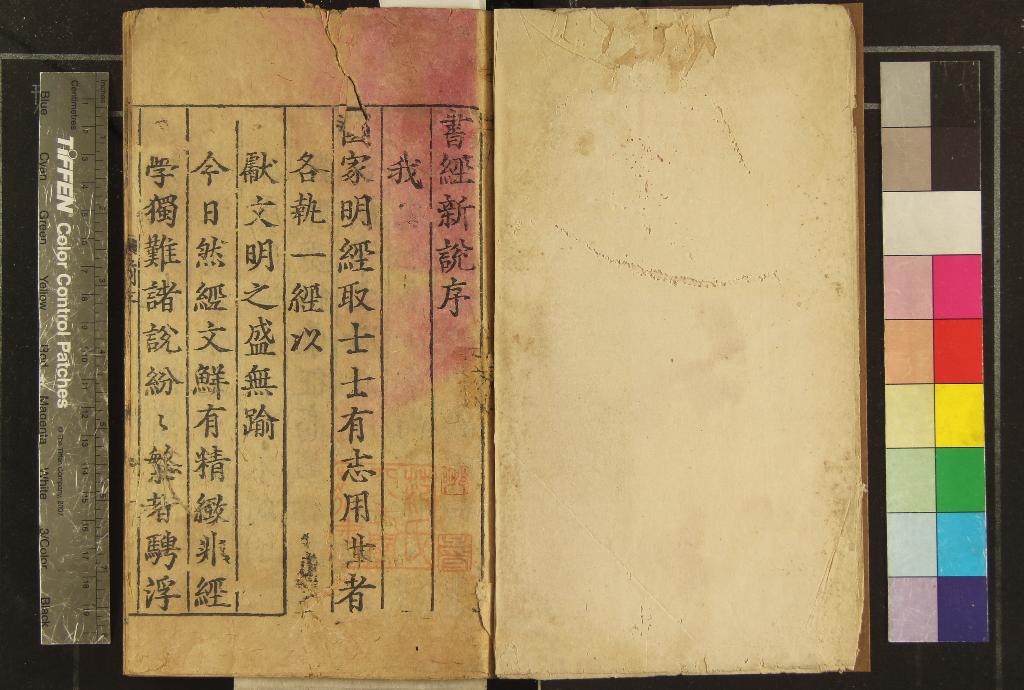 書經新說序
我
國家明經取士士有志用世者
各執一經以
獻文明之盛無踰
今日然經文鮮有精緻非經
学獨難諸説紛〻繁者騁浮
Inches
Centimetres
TIFFEN Color Control Patches
© The Tiffen Company, 2007
Blue
Cyan
Green
Yellow
Red
Magenta
White
3/Color
Black